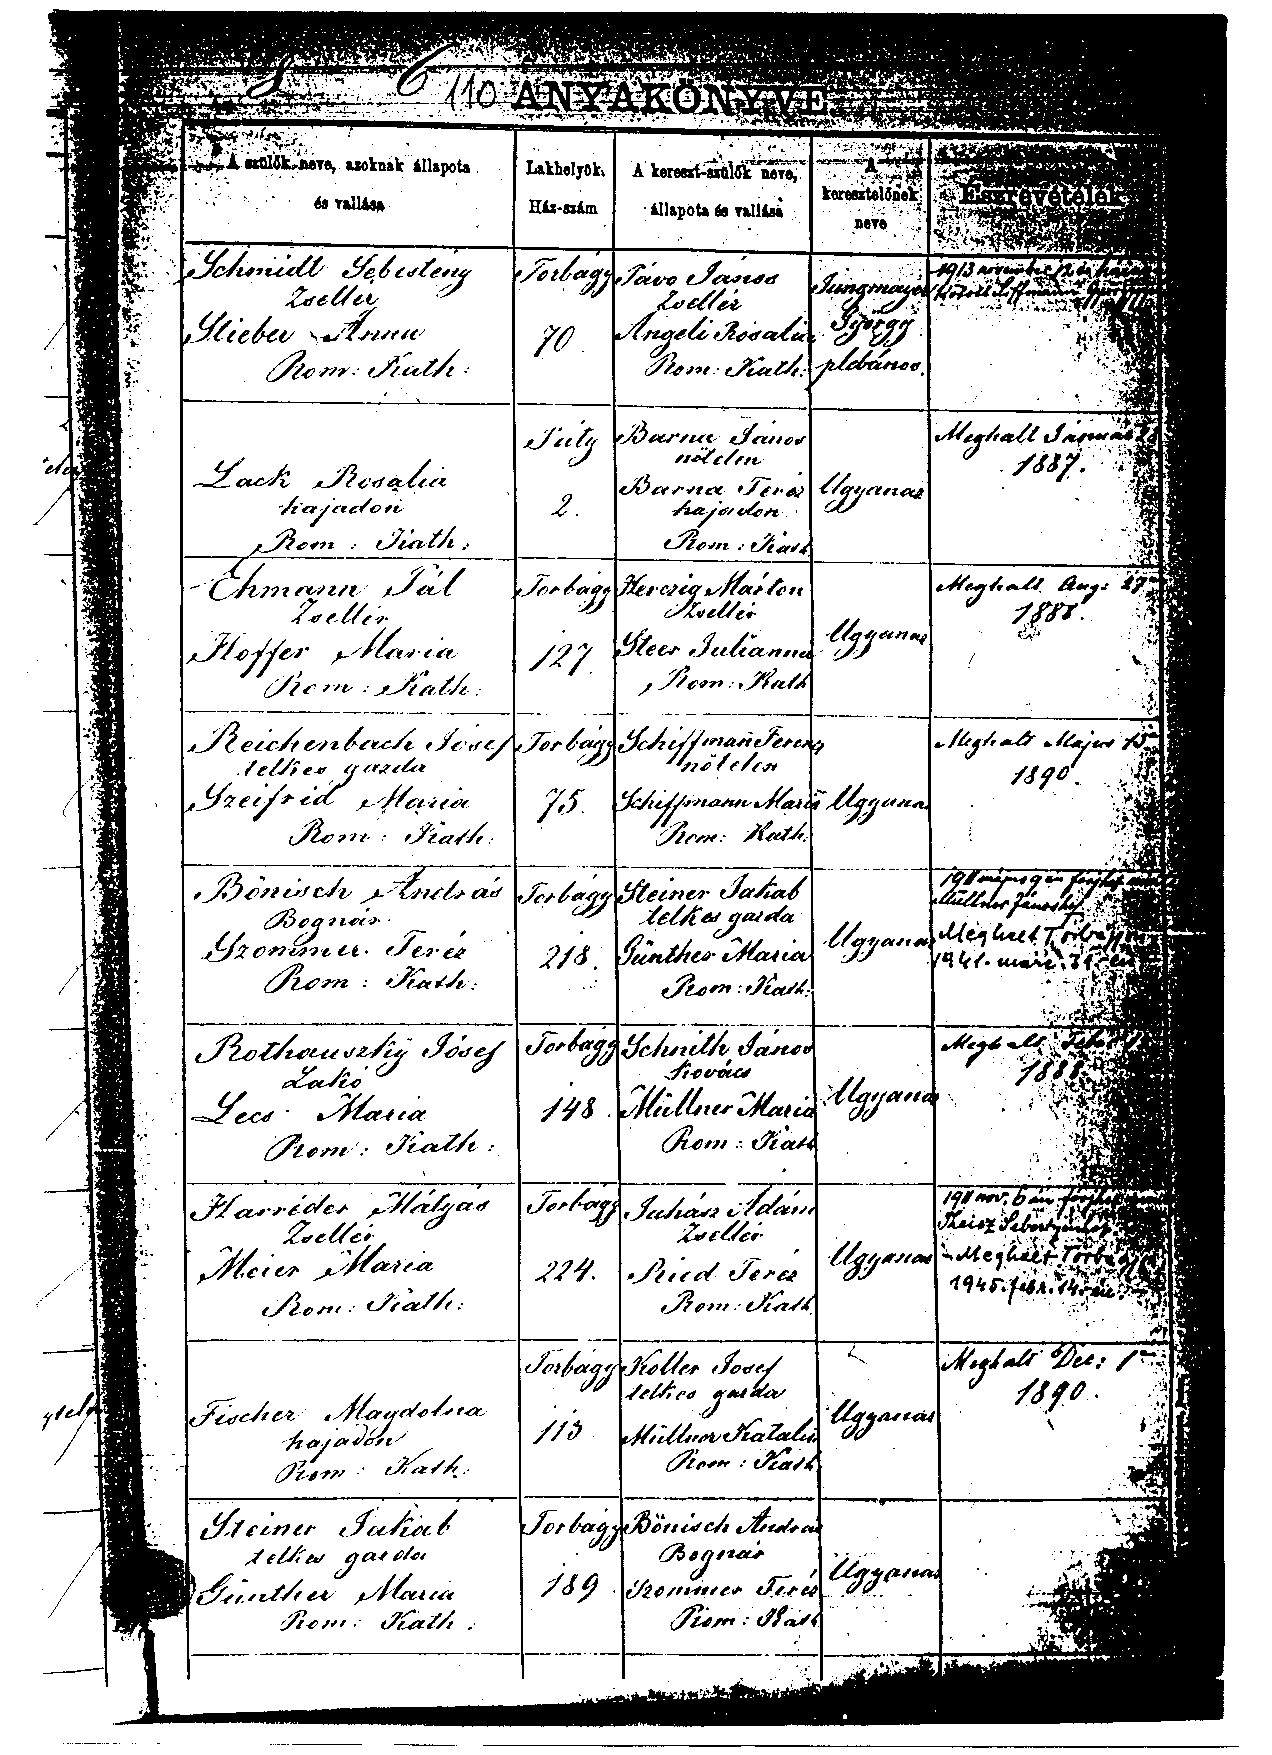 6
110 ANYAKÖNYVE
A szülők neve, azoknak állapota
és vallása
Lakhelyök,
Ház-szám
A kereszt-szülők neve,
állapota és vallása
A
keresztelőnek
neve
Észrevételek
Schmidt Sebestény
Zsellér
Stieber Anna
Rom: Kath:
Torbágy
70
Távo János
Zsellér
Angeli Rosalia
Rom: Kath:
Jungmayer
György
plébános.
1913 november 12 én
Lack Rosalia
hajadon
Rom: Kath:
Púty
2.
Barna János
nőtelen
Barna Teréz
hajadon
Rom: Kath
Ugyanaz
Meghalt Január
1887.
Ehmann Pál
Zsellér
Hoffer Maria
Rom: Kath:
Torbágy
127
Herczig Márton
Zsellér
Steer Julianna
Rom: Kath
Ugyanaz
Meghalt Aug: 27
1888.
Reichenbach József
telkes gazda
Szeifrid Maria
Rom: Kath:
Torbágy
75.
Schiffmann Ferencz
nőtelen
Schiffmann Maria
Rom: Kath:
Ugyanaz
Meghalt Május 15
1890.
Bönisch András
Bognár
Szommer Teréz
Rom: Kath:
Torbágy
218.
Steiner Jakab
telkes gazda
Günther Maria
Rom: Kath:
Ugyanaz
Müllner Jánoshoz
Meghalt Torbágy
1941. marc. 31-én
Rothauszky József
Lakó
Lecs Maria
Rom: Kath:
Torbágy
148.
Schnith János
Kovács
Müllner Maria
Rom: Kath
Ugyanaz
Meghalt Febr 1
1888.
Harréder Mátyás
Zsellér
Meier Maria
Rom: Kath:
Torbágy
224.
Juhász Adám
Zsellér
Ried Teréz
Rom: Kath
Ugyanaz
1911 nov. 6 án férjhez ment
Theisz Sebestyénhez
Meghalt Torbágy
1945. febr. 14-én.
Fischer Magdolna
hajadon
Rom: Kath:
Torbágy
113
Koller Josef
telkes gazda
Müllner Katalin
Rom: Kath
Ugyanaz
Meghalt Dec: 1
1890.
Steiner Jakab
telkes gazda
Günther Maria
Rom: Kath:
Torbágy
189
Bönisch András
Bognár
Szommer Teréz
Rom: Kath
Ugyanaz